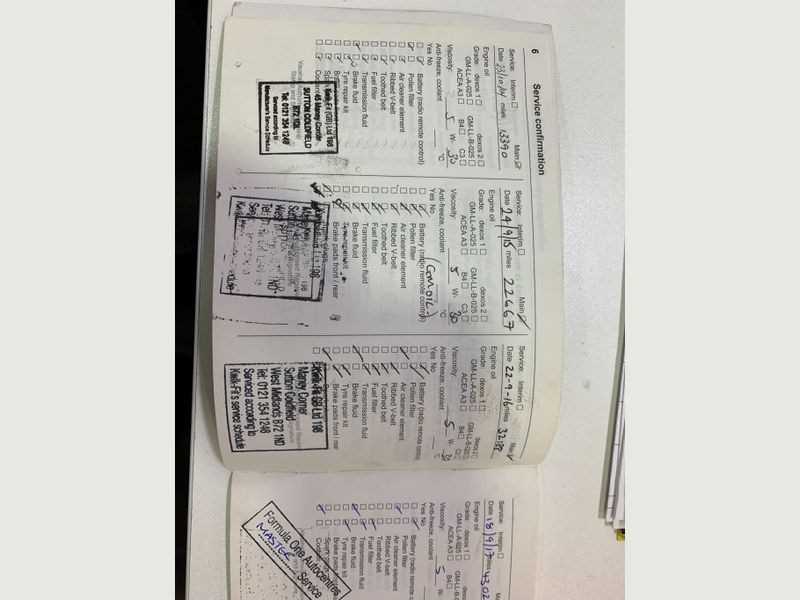 6 Service confirmation
Service: Interim Main
Date 23/10/14 miles 13390
Engine oil
Grade: dexos 1 dexos 2
GM-LL-A-025 GM-LL-B-025
ACEA A3 B4 C3
Viscosity: 5 W- 30
Anti-freeze, coolant °C
Yes No
Battery (radio remote control)
Pollen filter
Air cleaner element
Ribbed V-belt
Toothed belt
Fuel filter
Transmission fluid
Brake fluid
Tyre repair kit
Kwik-Fit (GB) Ltd 198
45 Maney Corner
SUTTON COLDFIELD
B72 1QL
Tel: 0121 354 1248
Serviced according to
Manufacturer's Service Schedule
Service: Interim Main
Date 24/9/15 miles 22667
Engine oil
Grade: dexos 1 dexos 2
GM-LL-A-025 GM-LL-B-025
ACEA A3 B4 C3
Viscosity: 5 W- 30
Anti-freeze, coolant (GM OIL) °C
Yes No
Battery (radio remote control)
Pollen filter
Air cleaner element
Ribbed V-belt
Toothed belt
Fuel filter
Transmission fluid
Brake fluid
Tyre repair kit
Brake pads front / rear
Service: Interim
Date 22-9-16 miles
Engine oil
Grade: dexos 1
GM-LL-A-025 GM-LL-B-025
ACEA A3 B4
Viscosity: 5 W-
Anti-freeze, coolant
Yes No
Battery (radio remote
Pollen filter
Air cleaner element
Ribbed V-belt
Toothed belt
Fuel filter
Transmission fluid
Brake fluid
Tyre repair kit
Brake pads front / rear
Kwik-Fit GB Ltd 198
Maney Corner
Sutton Coldfield
West Midlands B72 1ND
Tel: 0121 354 1248
Serviced according to
Kwik-Fit's service schedule
Service: Interim
Date 18/9/17
Engine oil
Grade: dexos 1
GM-LL-A-025
ACEA A3 B4
Viscosity: 5
Anti-freeze, coolant
Yes No
Battery (radio remote
Pollen filter
Air cleaner element
Ribbed V-belt
Toothed belt
Fuel filter
Transmission fluid
Brake fluid
Tyre repair kit
Brake pads
Formula One Autocentres
MASTER Service